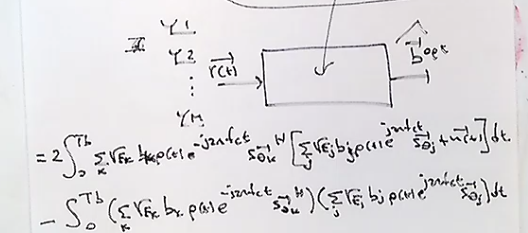 Y1
Y2
⋮
YM
r(t)
b̂ opt
= 2∫₀^Tb Σ_k √E_k b_k p(t) e^{-j2πfct} s_{θk}^H [Σ_j √E_j b_j p(t) e^{j2πfct} s_{θj} + n(t)] dt.
- ∫₀^Tb (Σ_k √E_k b_k p(t) e^{-j2πfct} s_{θk}^H)(Σ_j √E_j b_j p(t) e^{j2πfct} s_{θj}) dt